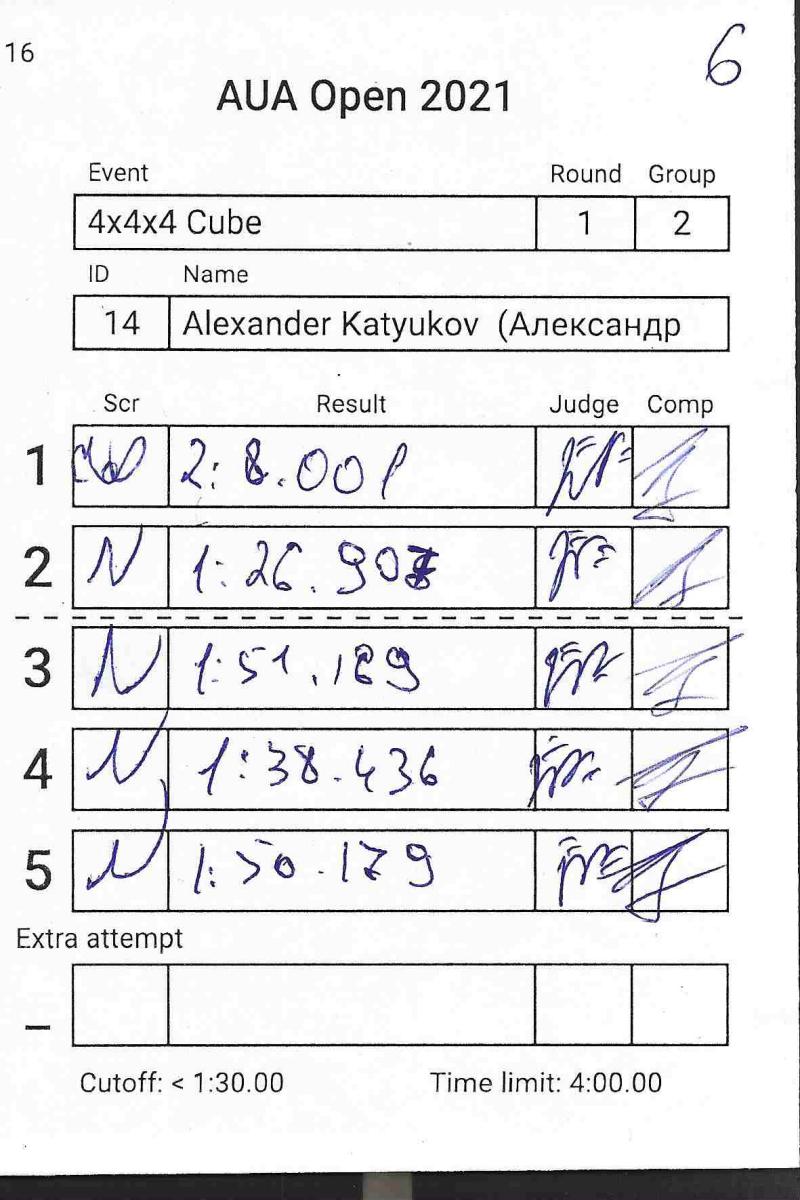 16
6
AUA Open 2021
Event Round Group
4x4x4 Cube 1 2
ID Name
14 Alexander Katyukov (Александр
Scr Result Judge Comp
1 2:8.001
2 N 1:26.907
3 N 1:51.189
4 N 1:38.436
5 N 1:50.179
Extra attempt
–
Cutoff: < 1:30.00 Time limit: 4:00.00